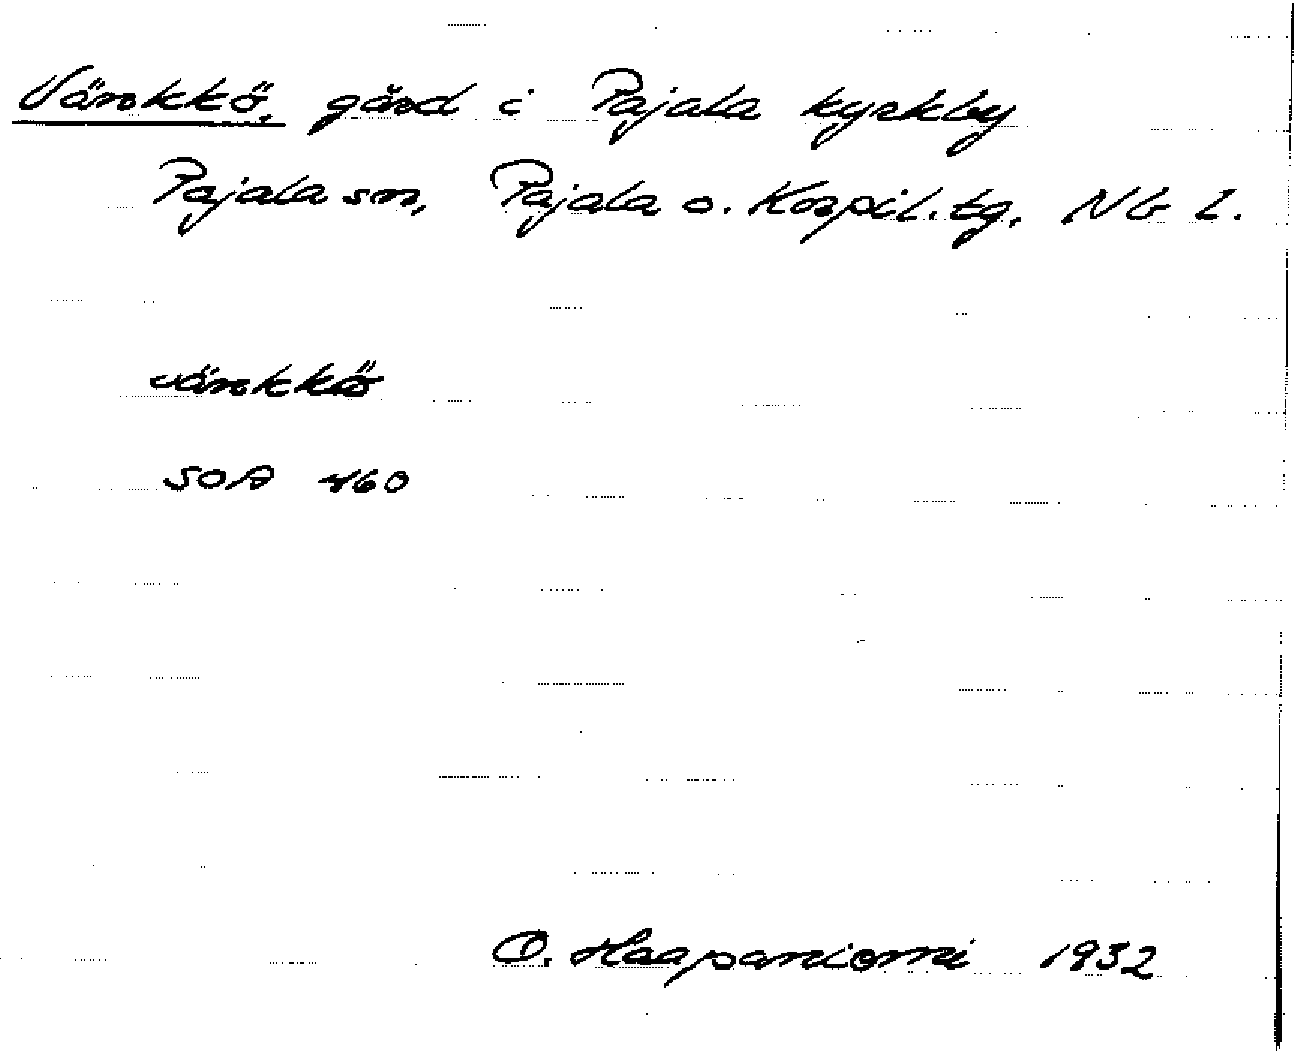 Vänkkö, gård i Pajala kyrkby
Pajala sn, Pajala o. Korpil. tg, Nb L.
vänkkö
SOA 460
O. Haapaniemi 1932